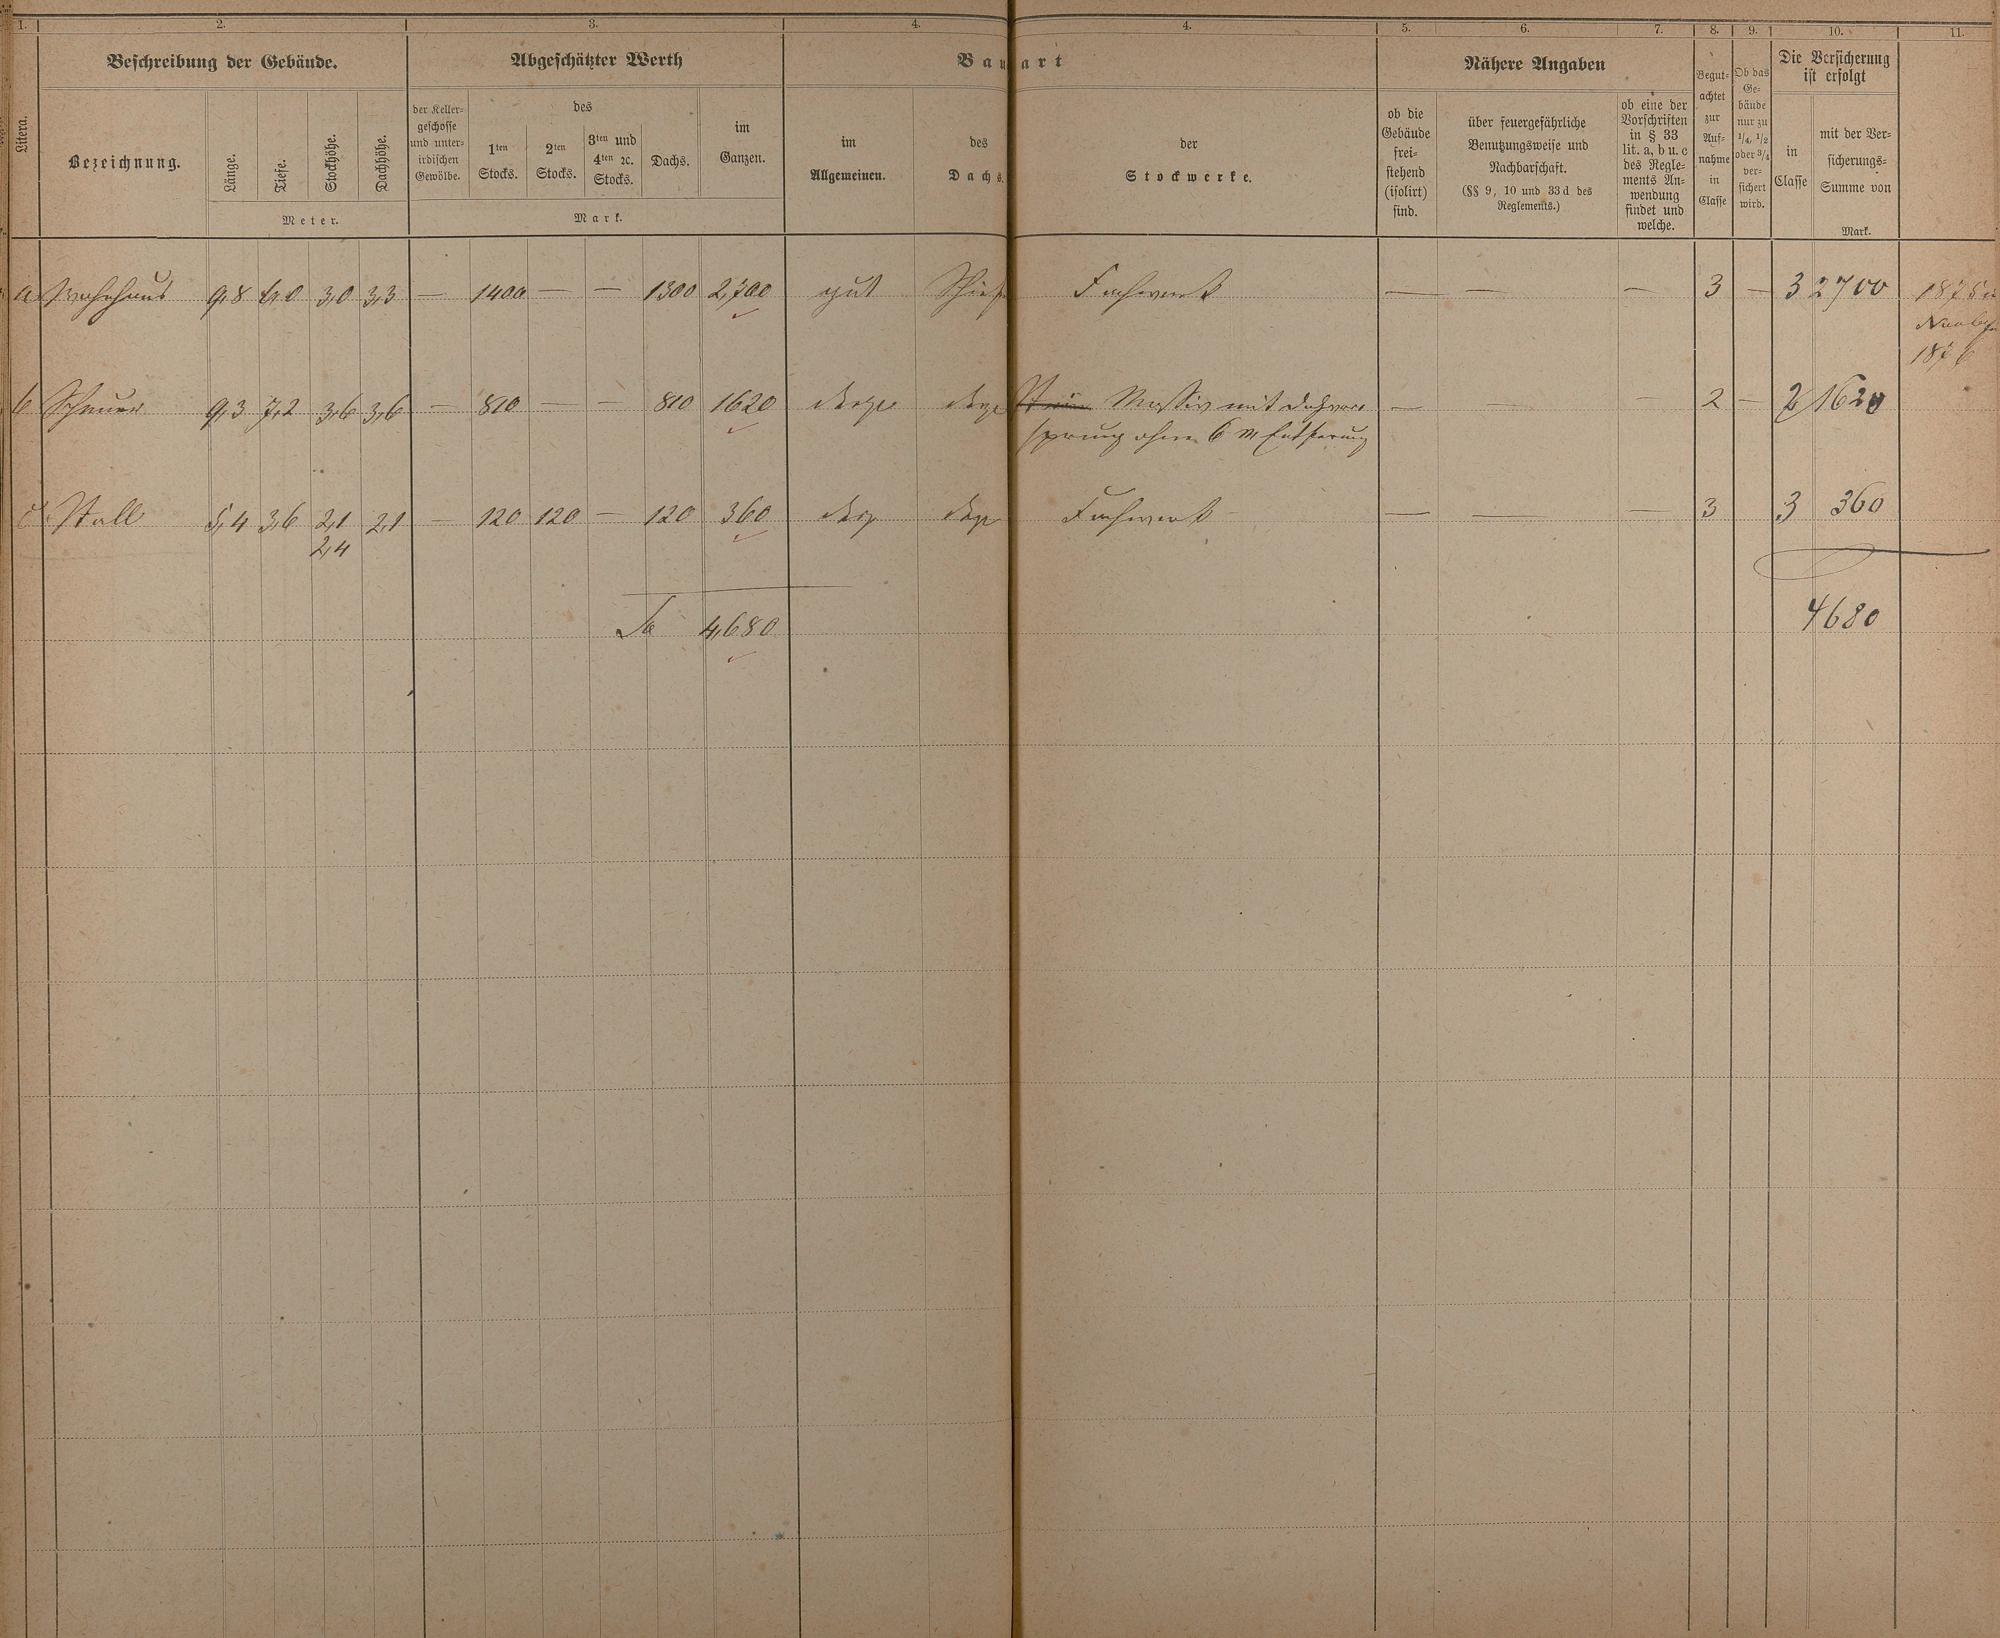 1. 2. 3. 4. 4. 5. 6. 7. 8. 9. 10. 11.
Beschreibung der Gebäude. Abgeschätzter Werth Bauart Nähere Angaben Die Versicherung ist erfolgt
Litera.
Bezeichnung.
Länge.
Tiefe.
Stockhöhe.
Dachhöhe.
Meter.
der Keller-
geschosse
und unter-
irdischen
Gewölbe.
des
1ten
Stocks.
2ten
Stocks.
3ten und
4ten ꝛc.
Stocks.
Dachs.
im
Ganzen.
Mark.
im
Allgemeinen.
des
Dachs.
der
Stockwerke.
ob die
Gebäude
frei-
stehend
(isolirt)
sind.
über feuergefährliche
Benutzungsweise und
Nachbarschaft.
(§§ 9, 10 und 33 d des
Reglements.)
ob eine der
Vorschriften
in § 33
lit. a, b u. c
des Regle-
ments An-
wendung
findet und
welche.
Begut-
achtet
zur
Auf-
nahme
in
Classe
Ob das
Ge-
bäude
nur zu
1/4, 1/2
oder 3/4
ver-
sichert
wird.
in
Classe
mit der Ver-
sicherungs-
Summe von
Mark.
a Wohnhaus 9,8 6,0 3,0 3,3 — 1400 — — 1300 2,700 gut Schief Fachwerk — — — 3 — 3 2700 1875
1876
b Scheuer 9,3 7,2 3,6 3,6 — 810 — — 810 1620 dergl dergl Massiv mit Dachvor
sprung ohne 6 m Entfernung — — — 2 — 2 1620
c Stall 5,4 3,6 2,1 2,1 — 120 120 — 120 360 dergl dergl Fachwerk — — — 3 3 360
2,4
Sa 4,680 4680